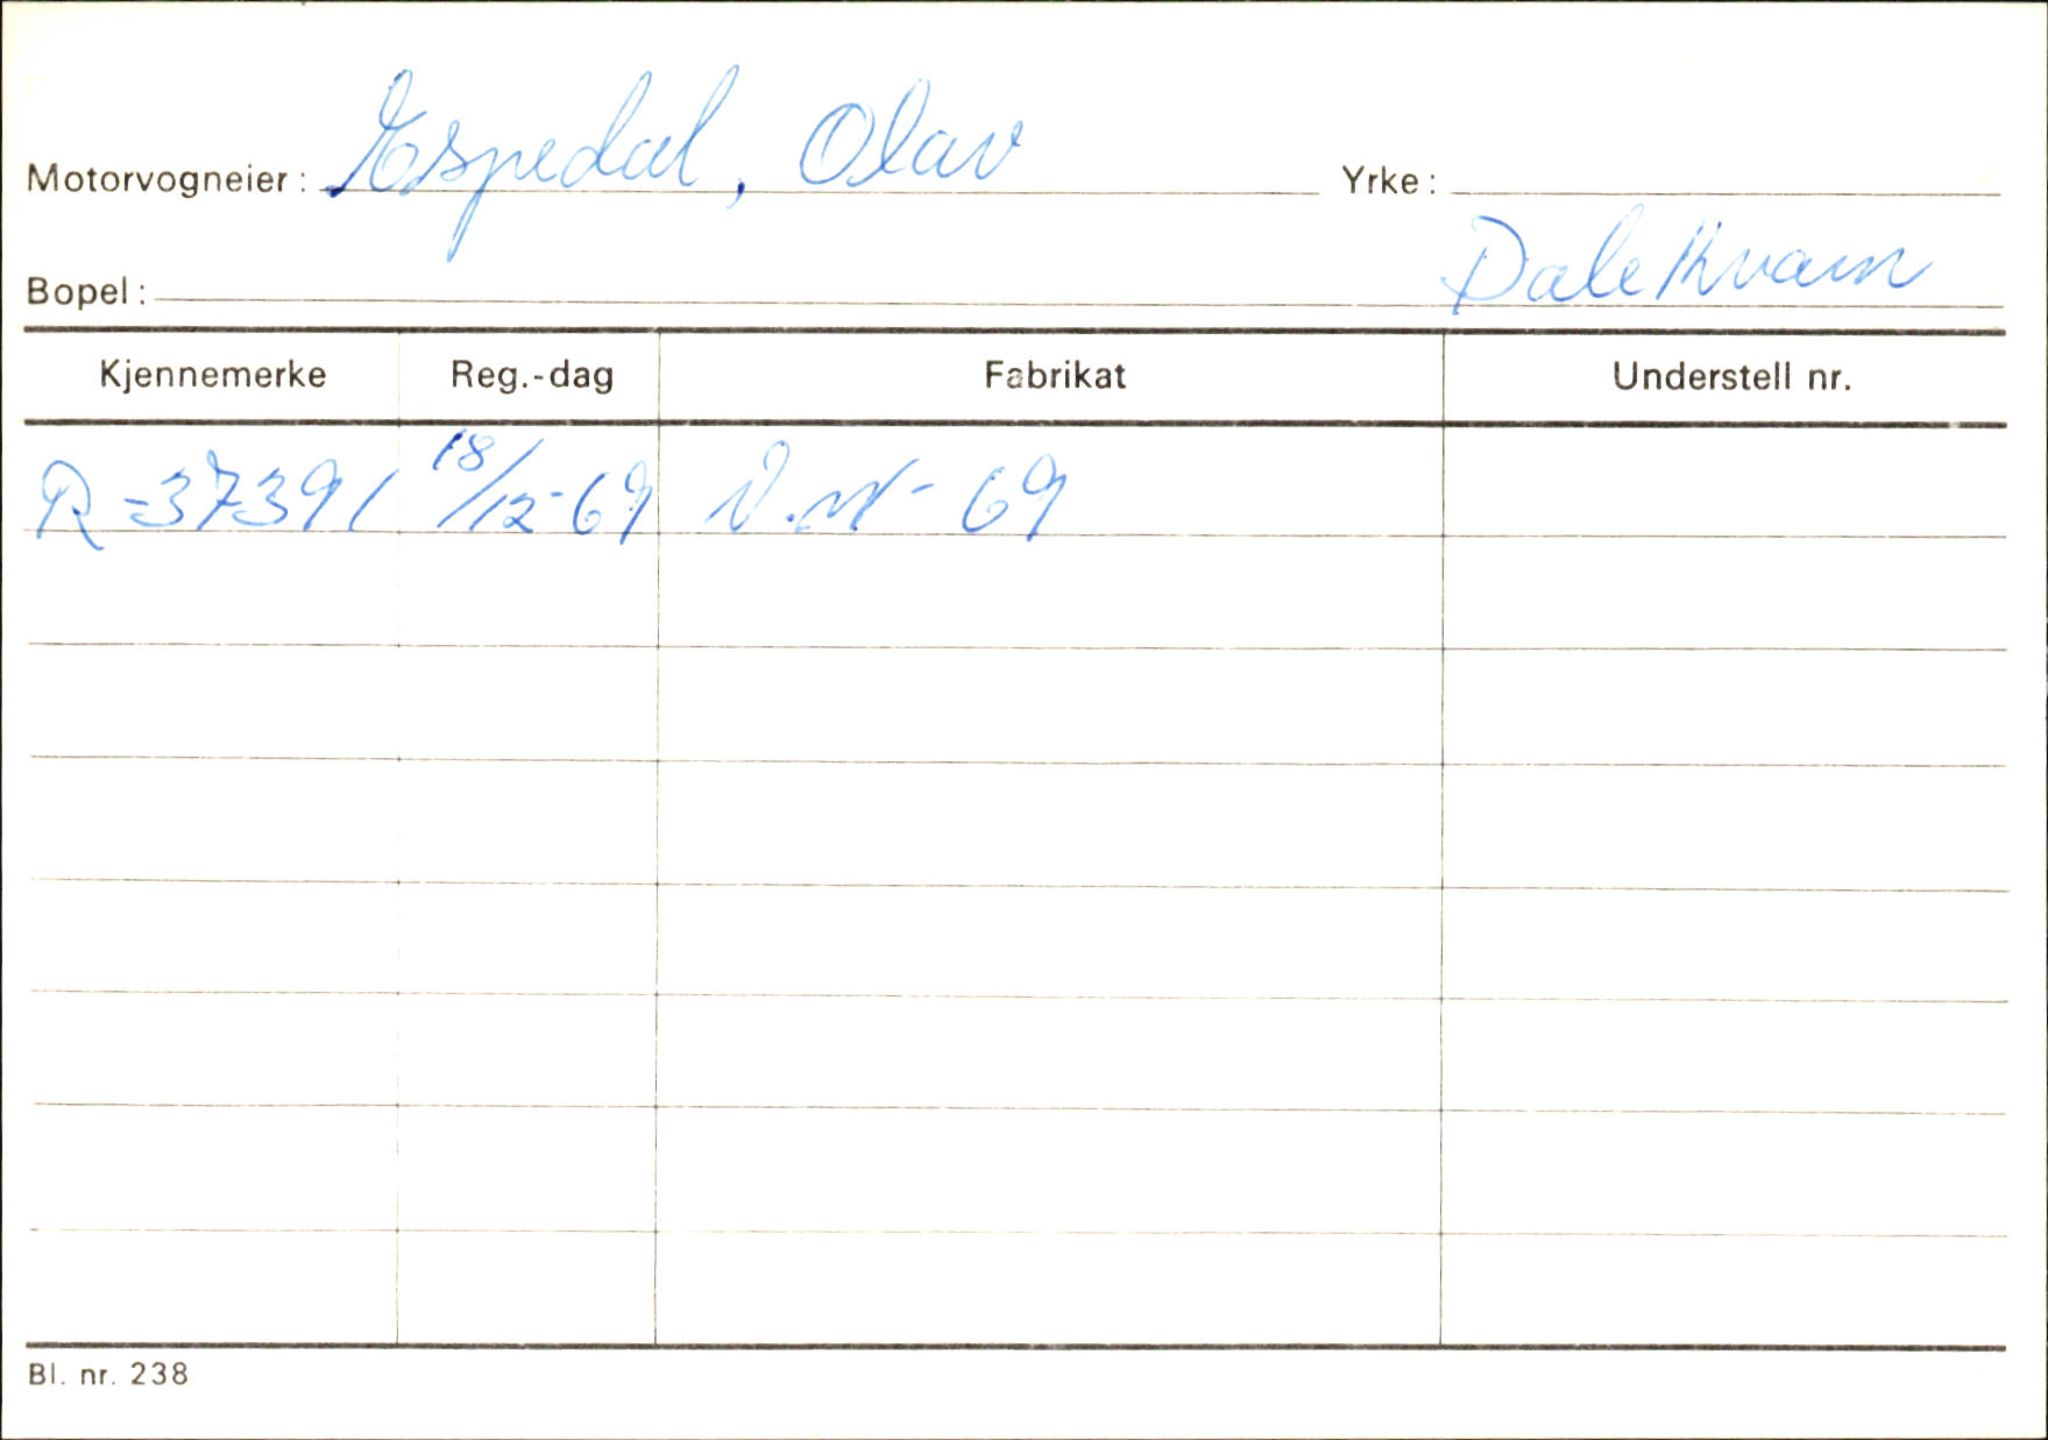 Motorvogneier: Espedal, Olav Yrke:
Bopel: Dale Kvam
Kjennemerke Reg.-dag Fabrikat Understell nr.
R-37391 18/12-69 V.W- 69
Bl. nr. 238